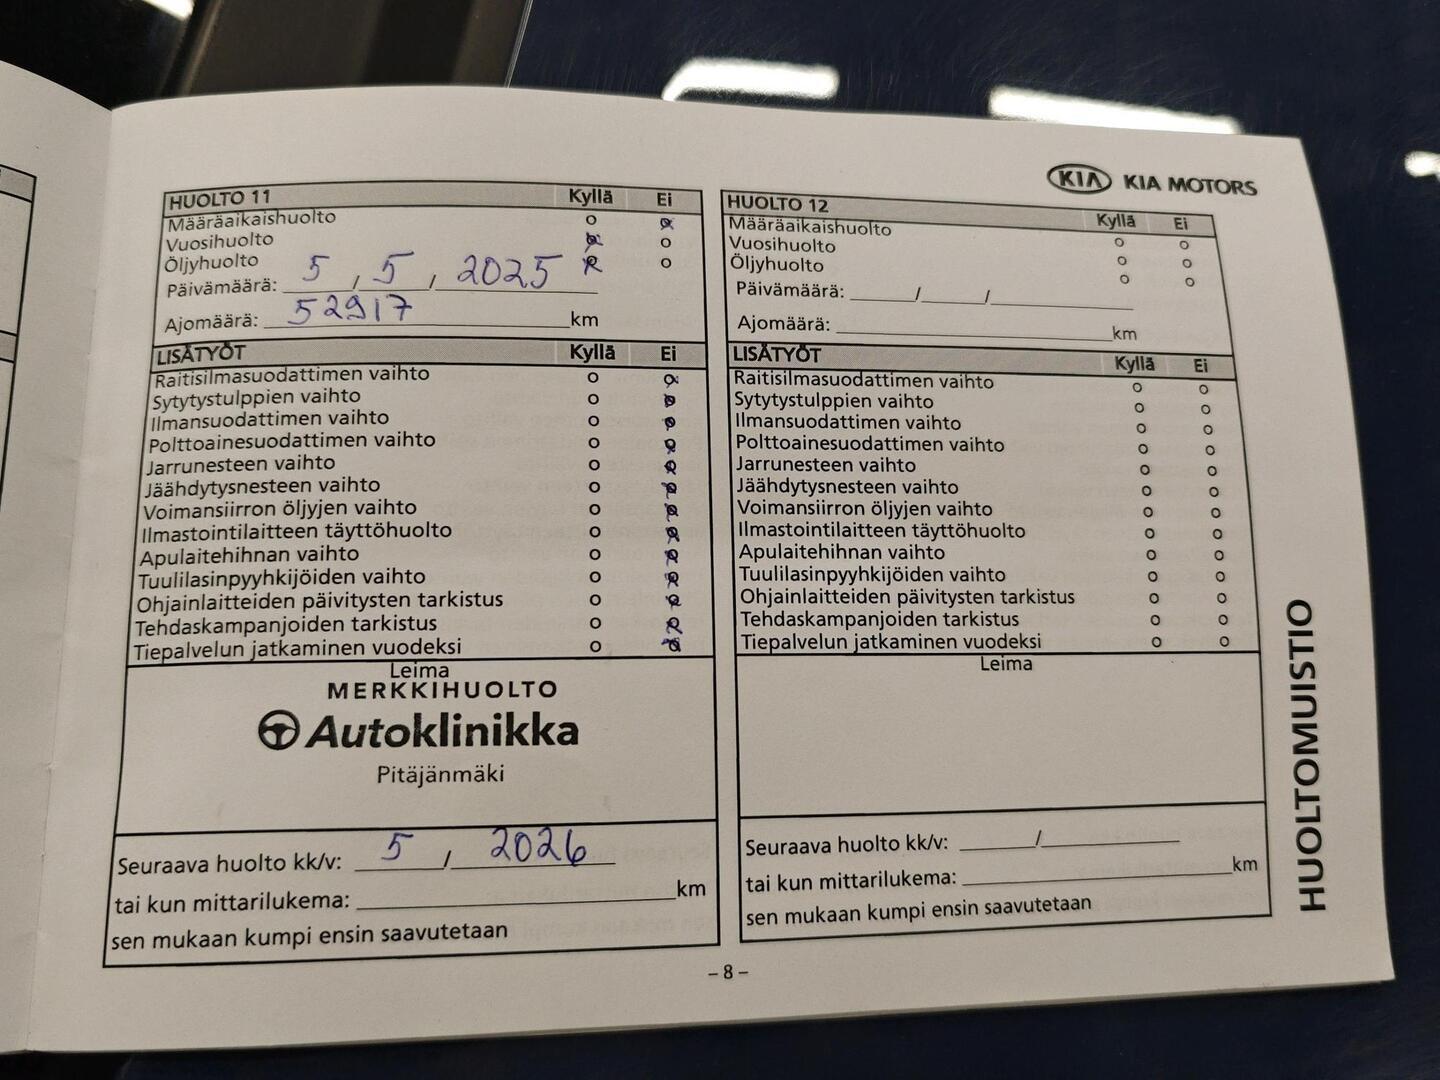 KIA KIA MOTORS
HUOLTO 11 Kyllä Ei
Määräaikaishuolto o o
Vuosihuolto o o
Öljyhuolto o o
Päivämäärä: 5 / 5 / 2025
Ajomäärä: 52917 km
LISÄTYÖT Kyllä Ei
Raitisilmasuodattimen vaihto o o
Sytytystulppien vaihto o o
Ilmansuodattimen vaihto o o
Polttoainesuodattimen vaihto o o
Jarrunesteen vaihto o o
Jäähdytysnesteen vaihto o o
Voimansiirron öljyjen vaihto o o
Ilmastointilaitteen täyttöhuolto o o
Apulaitehihnan vaihto o o
Tuulilasinpyyhkijöiden vaihto o o
Ohjainlaitteiden päivitysten tarkistus o o
Tehdaskampanjoiden tarkistus o o
Tiepalvelun jatkaminen vuodeksi o o
Leima
MERKKIHUOLTO
Autoklinikka
Pitäjänmäki
Seuraava huolto kk/v: 5 / 2026
tai kun mittarilukema: km
sen mukaan kumpi ensin saavutetaan
HUOLTO 12 Kyllä Ei
Määräaikaishuolto o o
Vuosihuolto o o
Öljyhuolto o o
Päivämäärä: / /
Ajomäärä: km
LISÄTYÖT Kyllä Ei
Raitisilmasuodattimen vaihto o o
Sytytystulppien vaihto o o
Ilmansuodattimen vaihto o o
Polttoainesuodattimen vaihto o o
Jarrunesteen vaihto o o
Jäähdytysnesteen vaihto o o
Voimansiirron öljyjen vaihto o o
Ilmastointilaitteen täyttöhuolto o o
Apulaitehihnan vaihto o o
Tuulilasinpyyhkijöiden vaihto o o
Ohjainlaitteiden päivitysten tarkistus o o
Tehdaskampanjoiden tarkistus o o
Tiepalvelun jatkaminen vuodeksi o o
Leima
Seuraava huolto kk/v: /
tai kun mittarilukema: km
sen mukaan kumpi ensin saavutetaan
HUOLTOMUISTIO
– 8 –